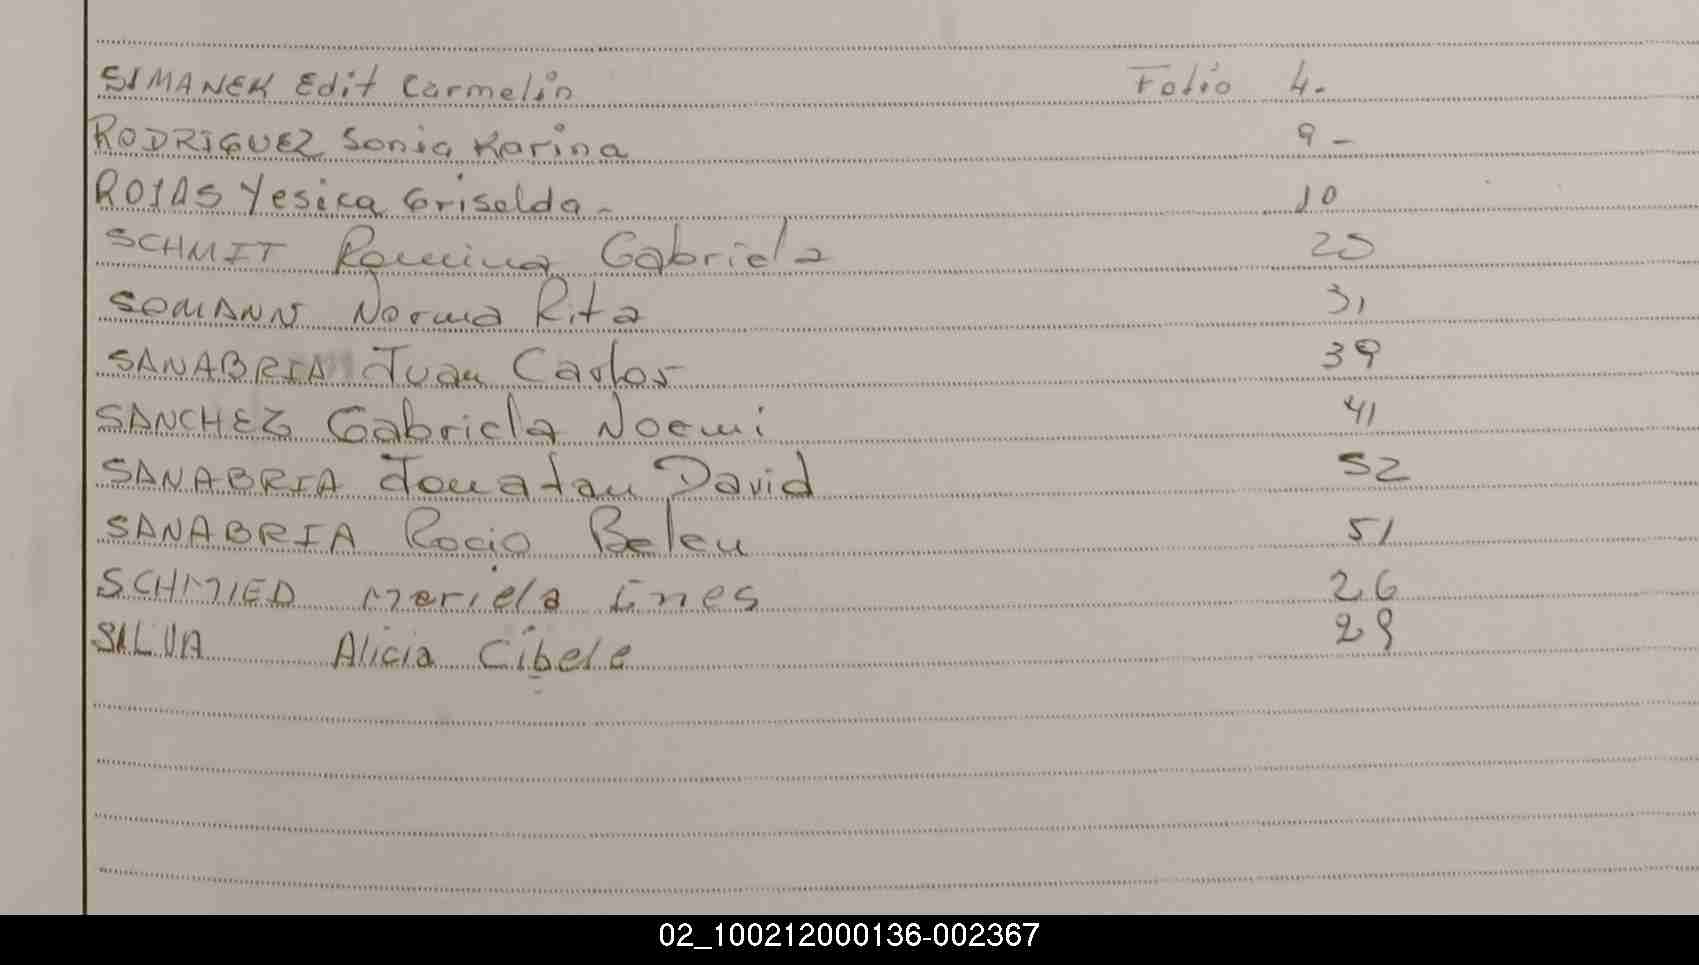 SIMANEK Edit Carmelin Folio 4.
RODRIGUEZ Sonia Karina 9 -
ROJAS Yesica Griselda - 10
SCHMIT Romina Gabriela 25
SOMANN Norma Rita 31
SANABRIA Juan Carlos 39
SANCHEZ Gabriela Noemi 41
SANABRIA Jonatan David 52
SANABRIA Rocio Belen 51
SCHMIED Mariela Ines 26
SILVA Alicia Cibele 29
02_100212000136-002367